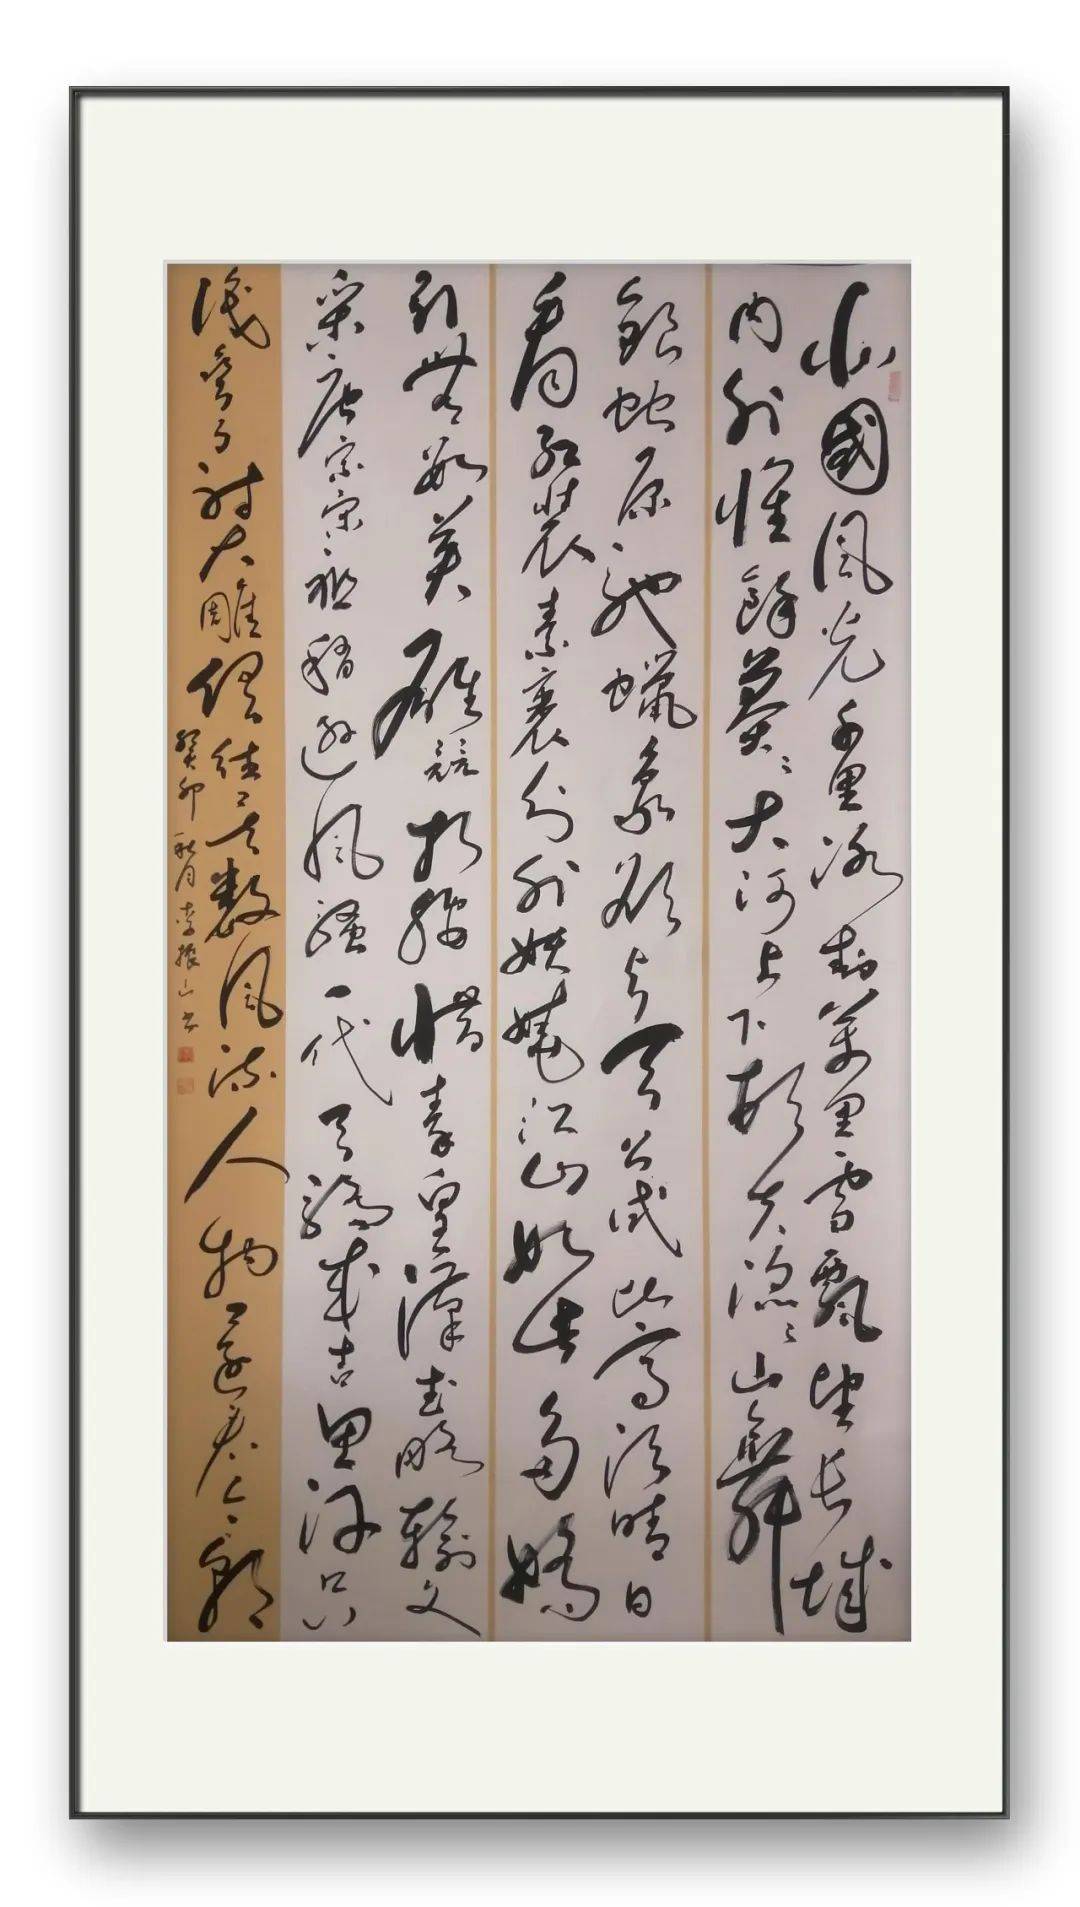 北國風光千里冰封萬里雪飄望長城
内外惟餘莽々大河上下頓失滔々山舞
銀蛇原馳蠟象欲與天公試比高須晴日
看紅裝素裹分外妖嬈江山如此多嬌
引無數英雄競折腰惜秦皇漢武略輸文
采唐宗宋祖稍遜風騷一代天驕成吉思汗只
識彎弓射大雕俱往矣數風流人物還看今朝
癸卯秋月李振山書